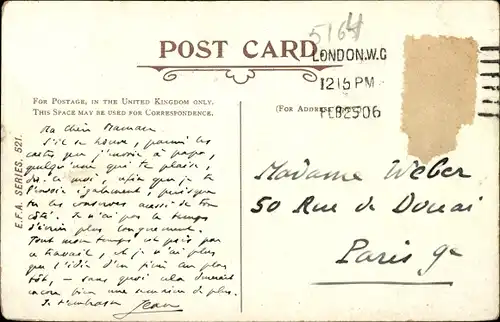 5164
POST CARD
LONDON.W.C
12 15 PM
FEB 25 06
FOR POSTAGE, IN THE UNITED KINGDOM ONLY.
THIS SPACE MAY BE USED FOR CORRESPONDENCE.
(FOR ADDRESS ONLY.)
E.F.A. SERIES. 521.
Ma chère Maman
S'il se trouve, parmi les
cartes que j'envoie à papa,
quelqu'une qui te plaise,
dis le moi, afin que je te
l'envoie également, puisque
tu les conserves aussi de ton
côté. Je n'ai pas le temps
d'écrire plus longuement.
Tout mon temps est pris par
ce travail, et je n'ai plus
que l'idée d'en finir au plus
tôt, — sans quoi cela durerait
encore bien une semaine de plus.
Je t'embrasse Jean
Madame Weber
50 Rue de Douai
Paris 9e